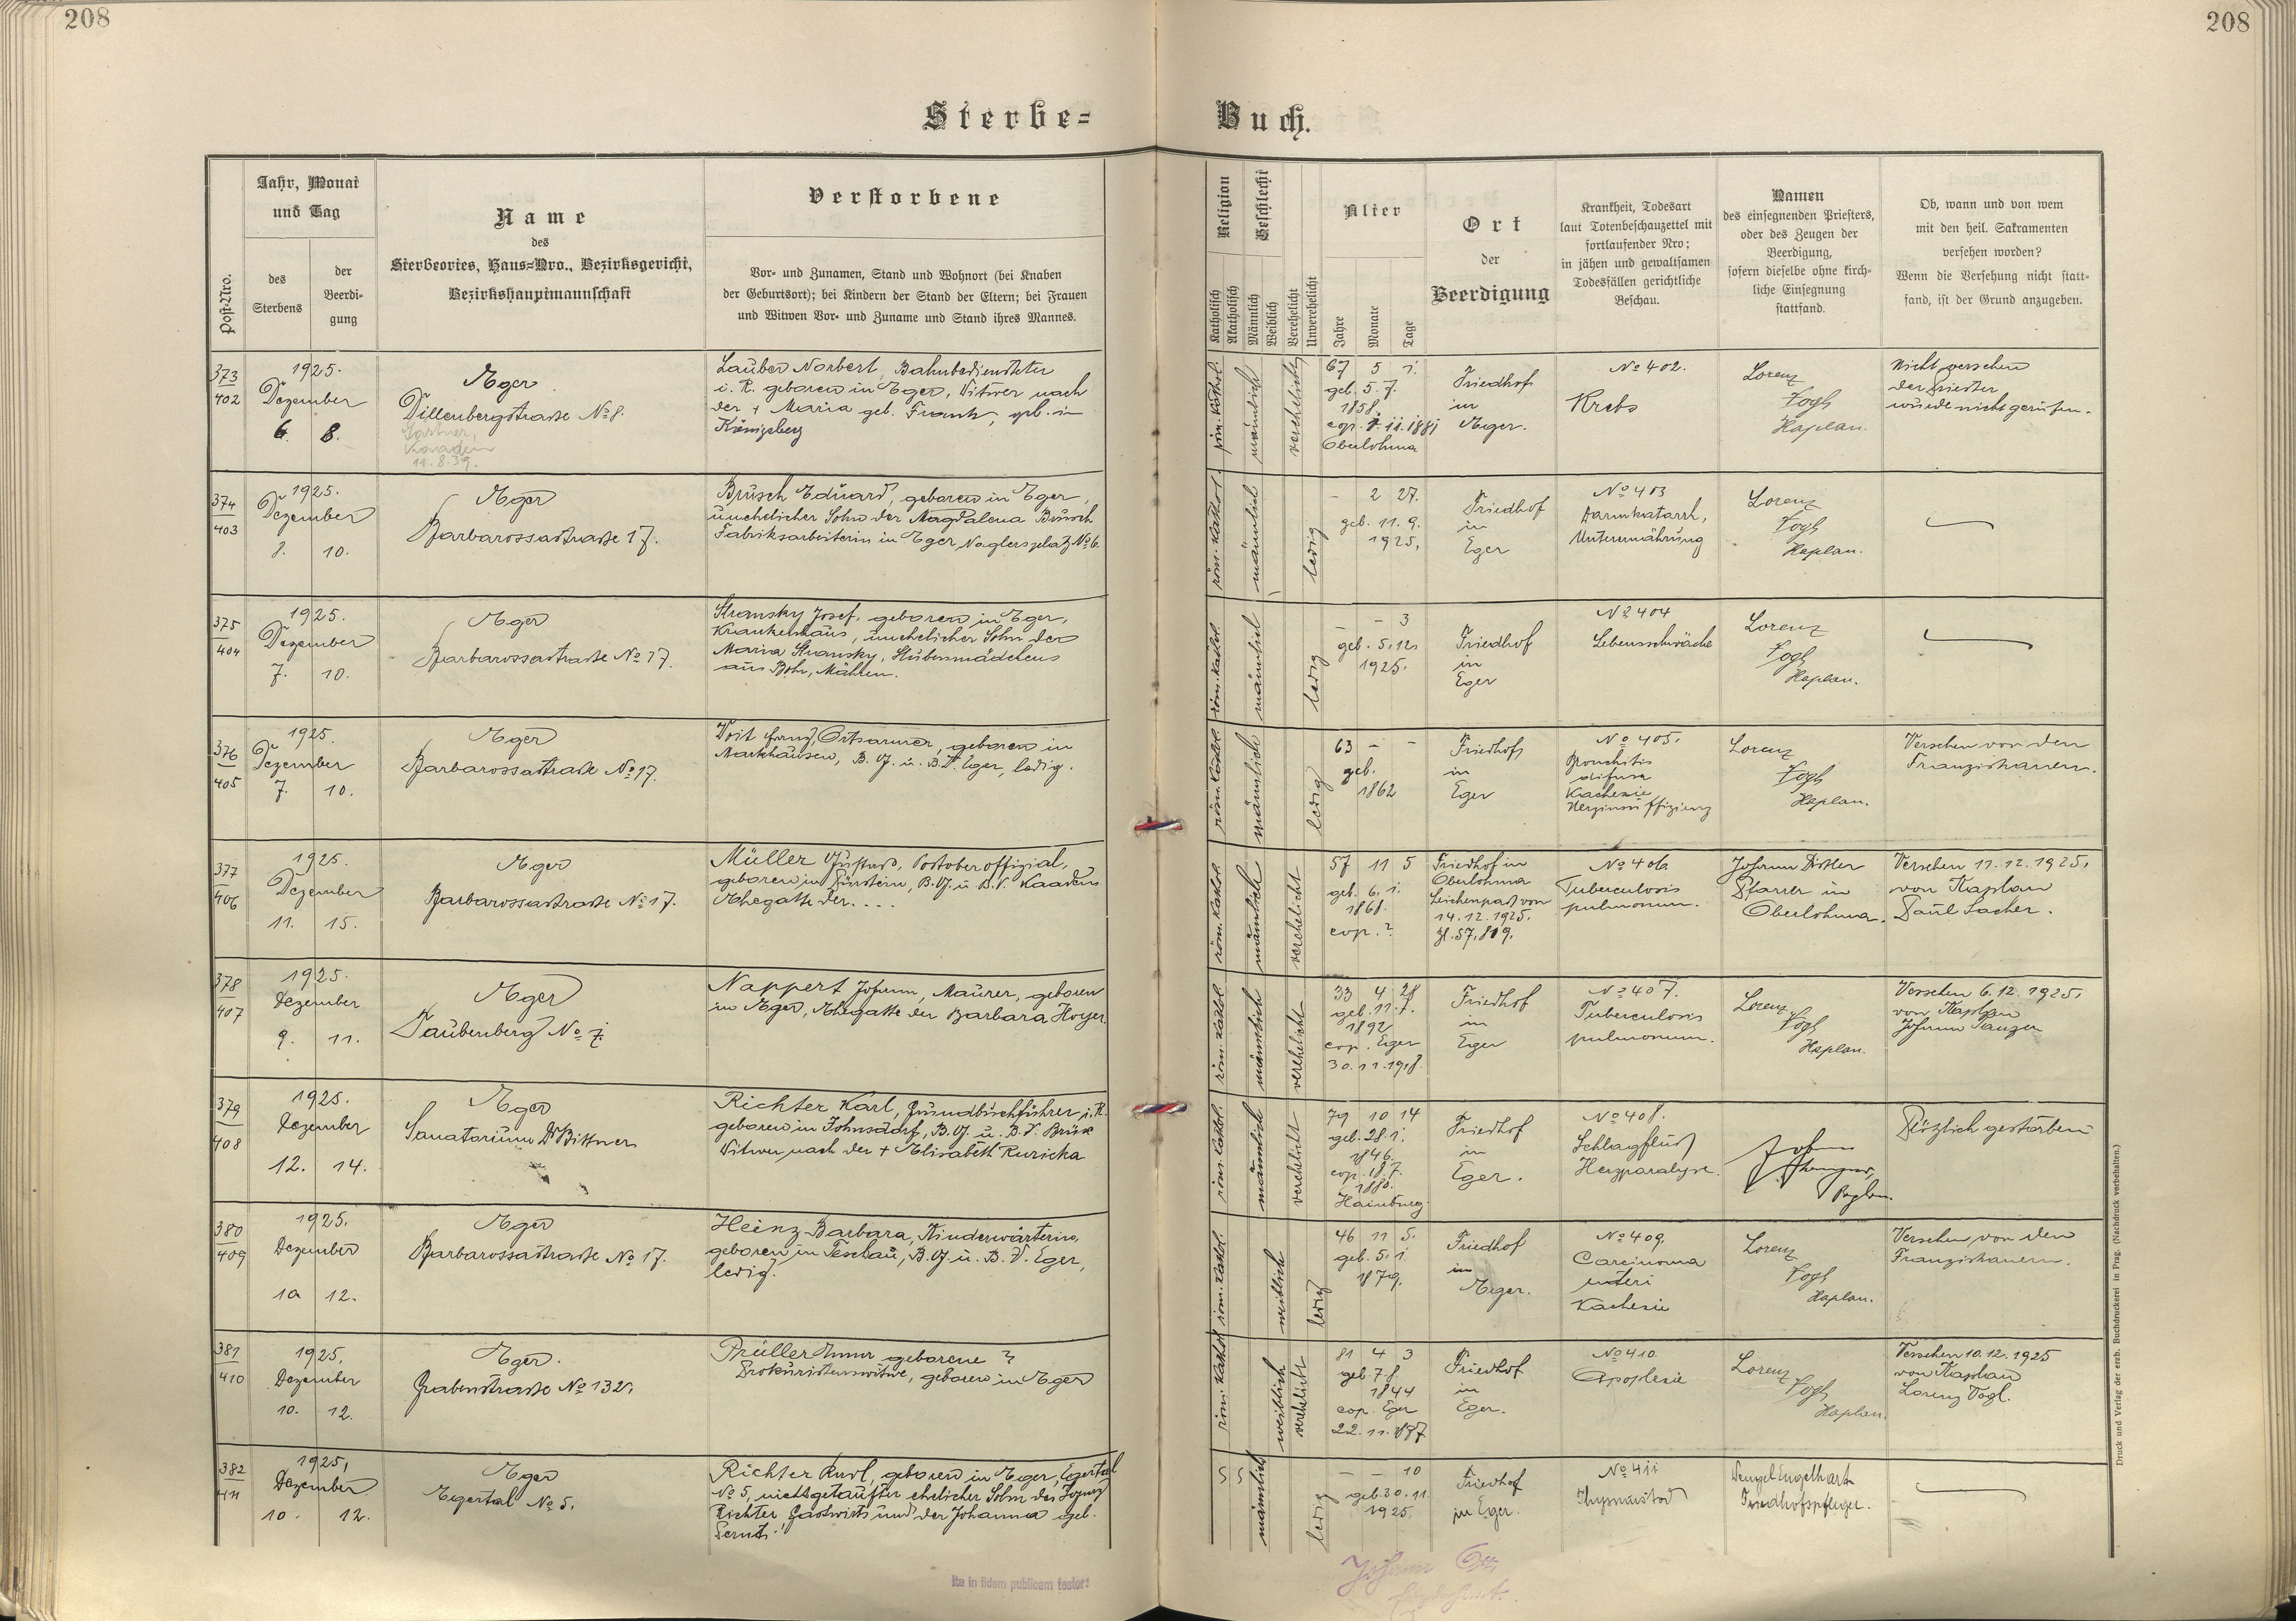 208
208
Sterbe=
Buch.
Post-Nro.
Jahr, Monat
und Tag
des
Sterbens
der
Beerdi-
gung
Name
des
Sterbeortes, Haus=Nro., Bezirksgericht,
Bezirkshauptmannschaft
Verstorbene
Vor- und Zunamen, Stand und Wohnort (bei Knaben
der Geburtsort); bei Kindern der Stand der Eltern; bei Frauen
und Witwen Vor- und Zuname und Stand ihres Mannes.
Religion
Katholisch
Akatholisch
Geschlecht
Männlich
Weiblich
Verehelicht
Unverehelicht
Alter
Jahre
Monate
Tage
Ort
der
Beerdigung
Krankheit, Todesart
laut Totenbeschauzettel mit
fortlaufender Nro;
in jähen und gewaltsamen
Todesfällen gerichtliche
Beschau.
Namen
des einsegnenden Priesters,
oder des Zeugen der
Beerdigung,
sofern dieselbe ohne kirch-
liche Einsegnung
stattfand.
Ob, wann und von wem
mit den heil. Sakramenten
versehen worden?
Wenn die Versehung nicht statt-
fand, ist der Grund anzugeben.
373
402
1925.
Dezember
6. 8.
Eger
Dillenbergstraße No 8.
11.8.39.
Lauber Norbert, Bahnbediensteter
i. R. geboren in Eger, Witwer nach
der + Maria geb. Frank, geb. in
Königsberg
röm. kathol.
männlich
verehelicht
67 5 1.
geb. 5. 7.
1858.
cop. 7. 11. 1881
Oberlohma
Friedhof
in
Eger.
No 402.
Krebs
Lorenz
Vogl
Kaplan.
Nicht versehen
der Priester
wurde nicht gerufen.
374
403
1925.
Dezember
8. 10.
Eger
Barbarossastraße 17.
Brusch Eduard, geboren in Eger,
unehelicher Sohn der Magdalena Brusch
Fabriksarbeiterin in Eger Naglersplatz No 6.
röm. kathol.
männlich
ledig
- 2 27.
geb. 11. 9.
1925.
Friedhof
in
Eger
No 403
Darmkatarrh,
Unterernährung
Lorenz
Vogl
Kaplan.
375
404
1925.
Dezember
7. 10.
Eger
Barbarossastraße No 17.
Stransky Josef, geboren in Eger,
Krankenhaus, unehelicher Sohn der
Maria Stransky, Stubenmädchens
aus Bohr, Mähren.
röm. kathol.
männlich
ledig
- - 3
geb. 5. 12.
1925.
Friedhof
in
Eger
No 404
Lebensschwäche
Lorenz
Vogl
Kaplan.
376
405
1925.
Dezember
7. 10.
Eger
Barbarossastraße No 17.
Voit Franz, Ortsarmer, geboren in
Markhausen, B. G. u. B. V. Eger, ledig.
röm. kathol.
männlich
ledig
63 - -
geb.
1862
Friedhof
in
Eger
No 405.
Bronchitis
difusa
Kachexie
Herzinsuffizienz
Lorenz
Vogl
Kaplan.
Versehen von den
Franziskanern.
377
406
1925.
Dezember
11. 15.
Eger
Barbarossastraße No 17.
Müller Gustav, Postoberoffizial,
geboren in Pürstein, B. G. u. B. V. Kaaden
Ehegatte der. . . .
röm. kathol.
männlich
verehelicht
57 11 5
geb. 6. 1.
1868.
cop. ?
Friedhof in
Oberlohma
Leichenpaß von
14. 12. 1925.
Zl. 57.819.
No 406.
Tuberculosis
pulmonum.
Johann
Pfarrer in
Oberlohma.
Versehen 11. 12. 1925.
von Kaplan
Paul Sacher.
378
407
1925.
Dezember
9. 11.
Eger
Taubenberg No 7.
Nappert Johann, Maurer, geboren
in Eger, Ehegatte der Barbara Hoyer.
röm. kathol.
männlich
verehelicht
33 4 28
geb. 11. 7.
1892
cop. Eger
30. 11. 1918.
Friedhof
in
Eger
No 407.
Tuberculosis
pulmonum.
Lorenz
Vogl
Kaplan.
Versehen 6. 12. 1925.
von Kaplan
Johann
379
408
1925.
Dezember
12. 14.
Eger
Sanatorium Dr Bittner
Richter Karl, Grundbuchführer i. R.
geboren in Johnsdorf, B. G. u. B. V. Brüx
Witwer nach der + Elisabeth Ruzicka
röm. kathol.
männlich
verehelicht
79 10 14
geb. 28. 1.
1846.
cop. 18. 7.
1880.
Hainburg
Friedhof
in
Eger.
No 408.
Schlagfluß
Herzparalyse.
Plötzlich gestorben
380
409
1925.
Dezember
10 12.
Eger
Barbarossastraße No 17.
Heinz Barbara, Kinderwärterin,
geboren in Teschau, B. G. u. B. V. Eger,
ledig.
röm. kathol.
weiblich
ledig
46 11 5.
geb. 5. 1.
1879.
Friedhof
in
Eger.
No 409.
Carcinoma
uteri
Kachexie
Lorenz
Vogl
Kaplan.
Versehen von den
Franziskanern.
381
410
1925.
Dezember
10. 12.
Eger.
Grabenstraße No 132.
Prüller Anna geborene ?
Prokuristenswitwe, geboren in Eger
röm. kathol.
weiblich
verehelicht
81 4 3
geb. 7. 8.
1844
cop. Eger
22. 11. 1887
Friedhof
in
Eger.
No 410.
Apoplexie
Lorenz
Vogl
Kaplan.
Versehen 10. 12. 1925
von Kaplan
Lorenz Vogl.
382
411
1925.
Dezember
10. 12.
Eger
Egertal No 5.
Richter Karl, geboren in Eger, Egertal
No 5, nichtgetaufter ehelicher Sohn des
Richter, Gastwirts und der Johanna geb.
männlich
ledig
- - 10
geb. 30. 11.
1925.
Friedhof
in Eger.
No 411
Wenzel Engelhart
Friedhofspfleger.
Ita in fidem publicam testor:
Druck und Verlag der erzb. Buchdruckerei in Prag. (Nachdruck vorbehalten.)